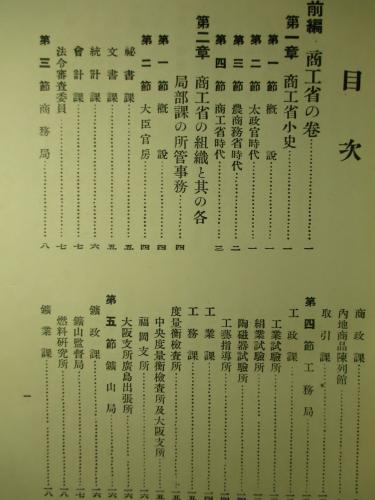 目次
前編 商工省の巻……一
第一章 商工省小史……一
第一節 概說……一
第二節 太政官時代……一
第三節 農商務省時代……二
第四節 商工省時代……三
第二章 商工省の組織と其の各
局部課の所管事務……四
第一節 概說……四
第二節 大臣官房……四
祕書課……五
文書課……五
統計課……六
會計課……七
法令審査委員……七
第三節 商務局……八
商政課
內地商品陳列館
取引課
第四節 工務局
工政課
工業試驗所
絹業試驗所
陶磁器試驗所
工藝指導所
工業課
工務課
度量衡檢査所
中央度量衡檢査所及大阪支所
福岡支所
大阪支所廣島出張所
第五節 鑛山局
鑛政課
鑛山監督局
燃料硏究所
鑛業課
一